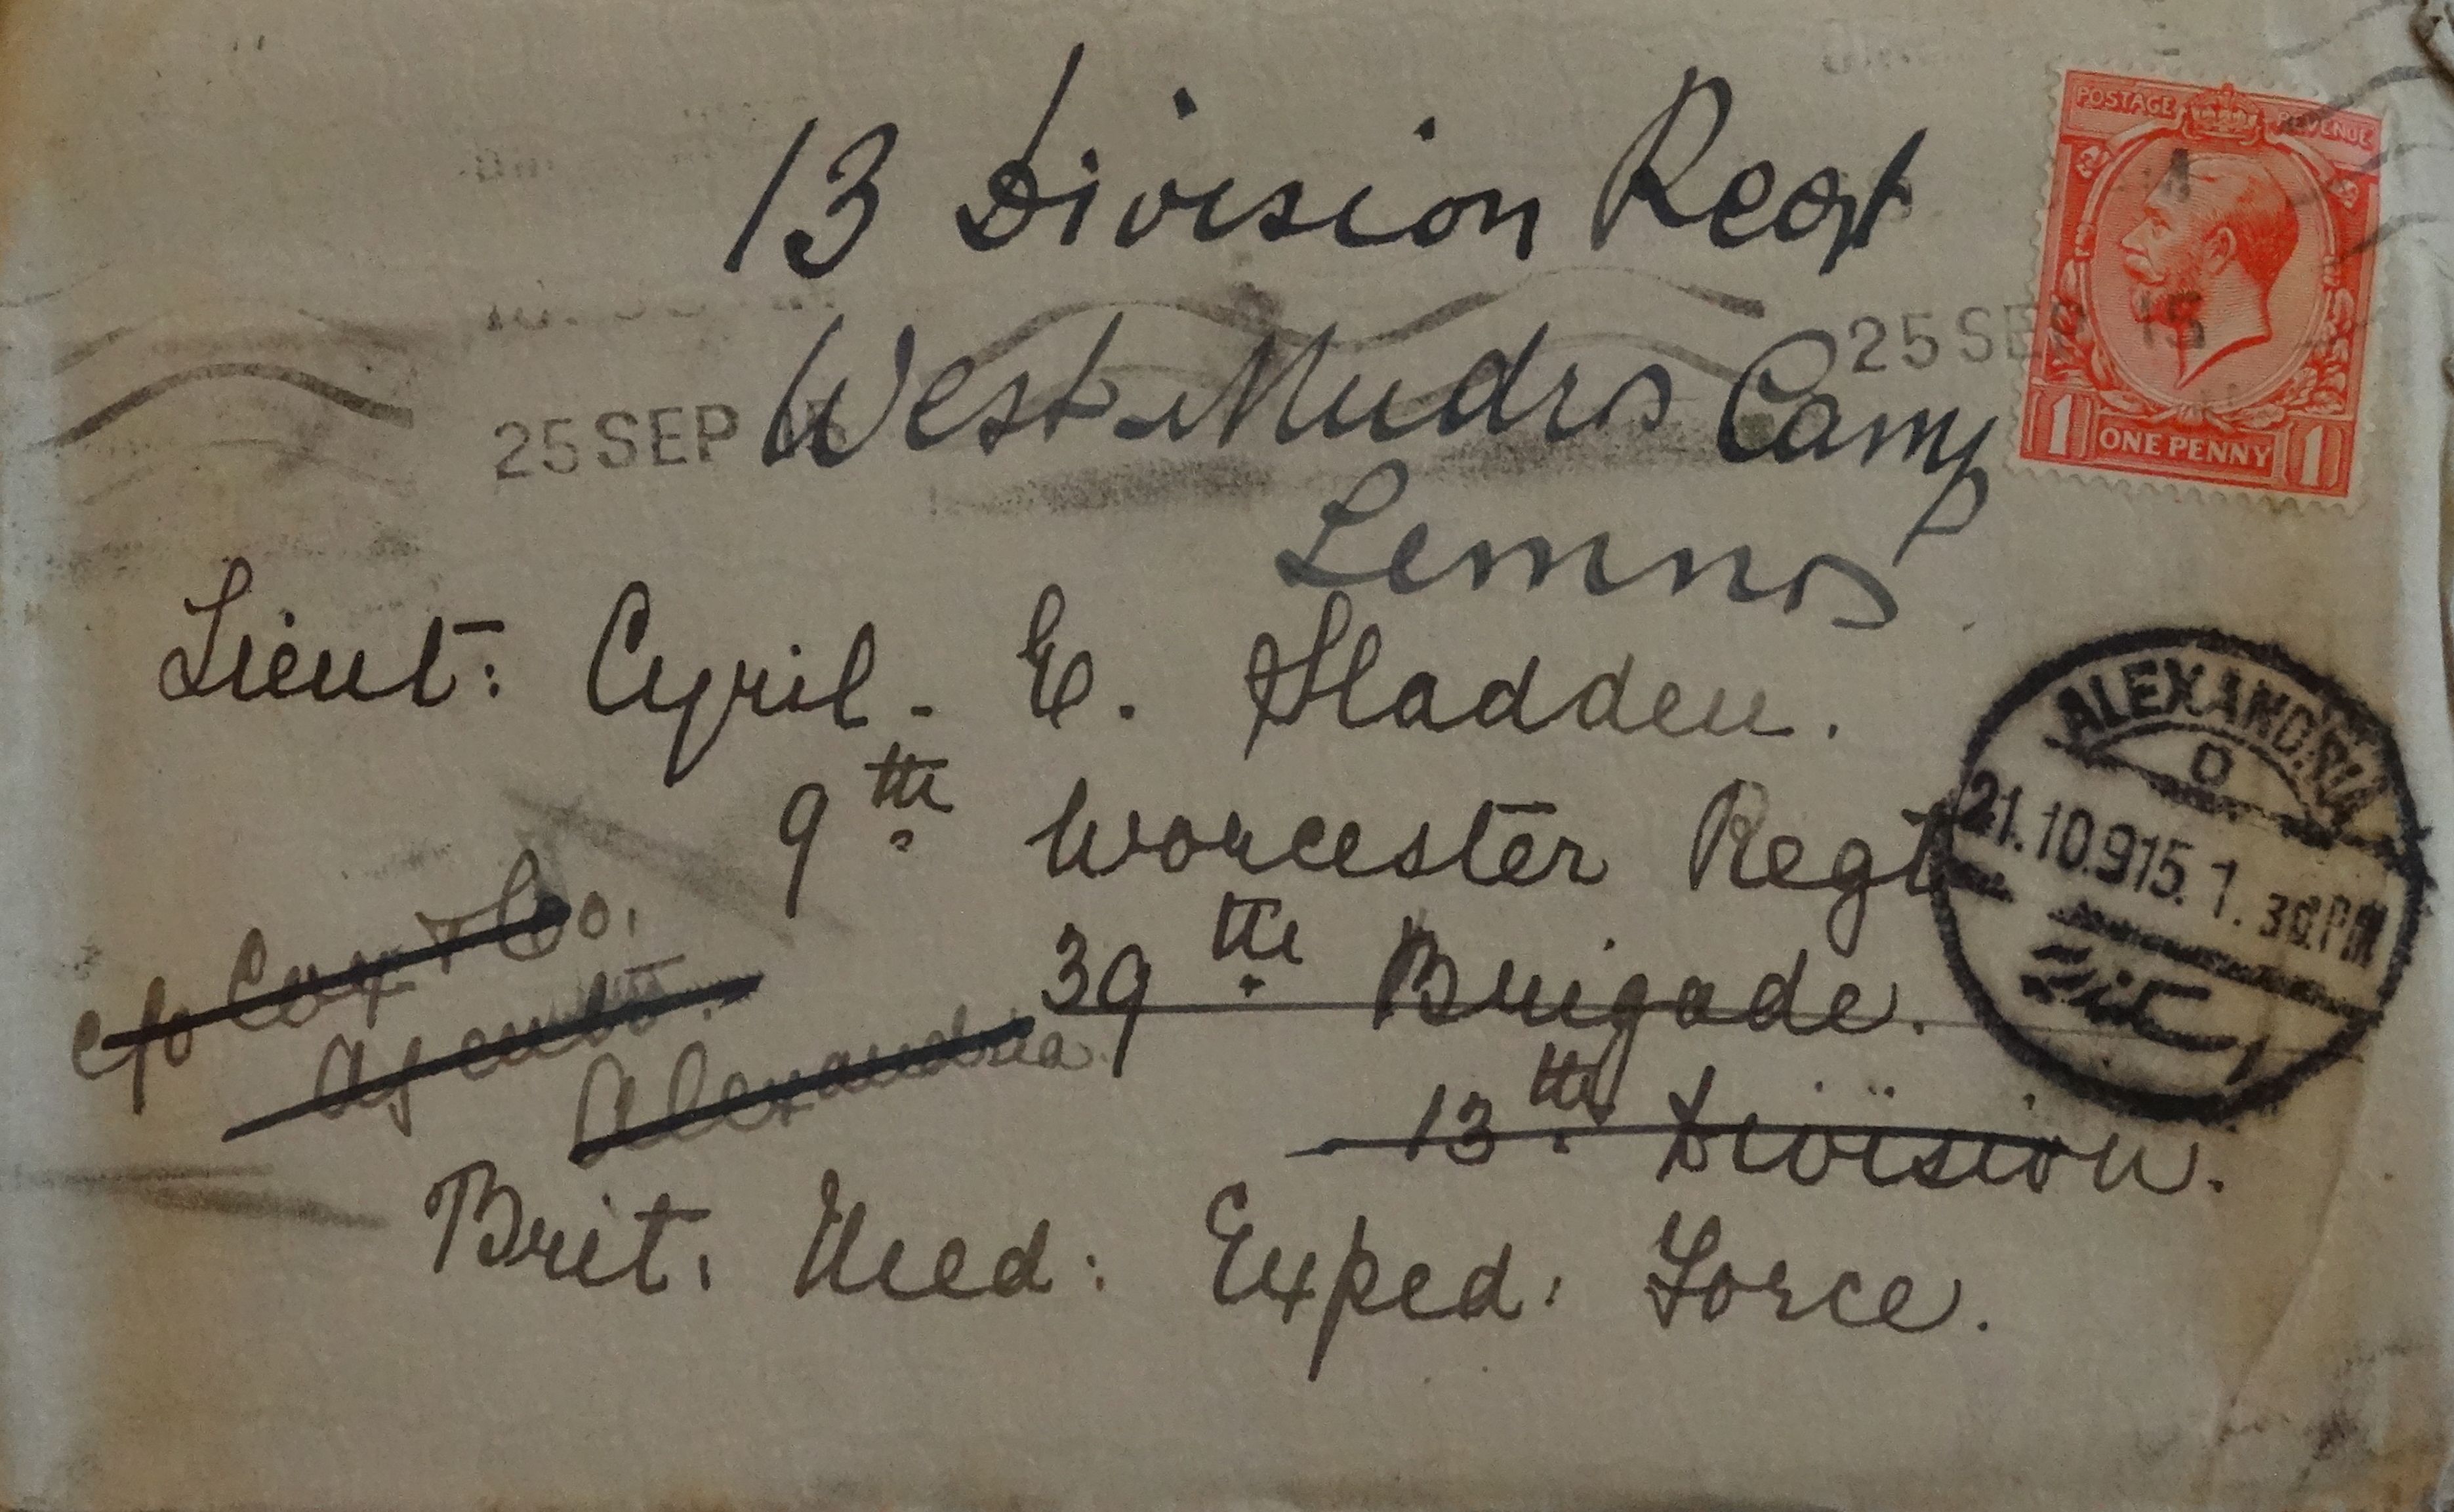 13 Division Regt
West Mudros Camp
Lemnos
POSTAGE REVENUE
1 ONE PENNY 1
25 SEP 15
25 SEP
Lieut: Cyril. E. Sladden.
9th Worcester Regt
39th Brigade.
13th Division.
c/o Cox & Co.
Agents.
Alexandria.
Brit. Med: Exped: Force.
ALEXANDRIA
21.10.915. 1.30.PM